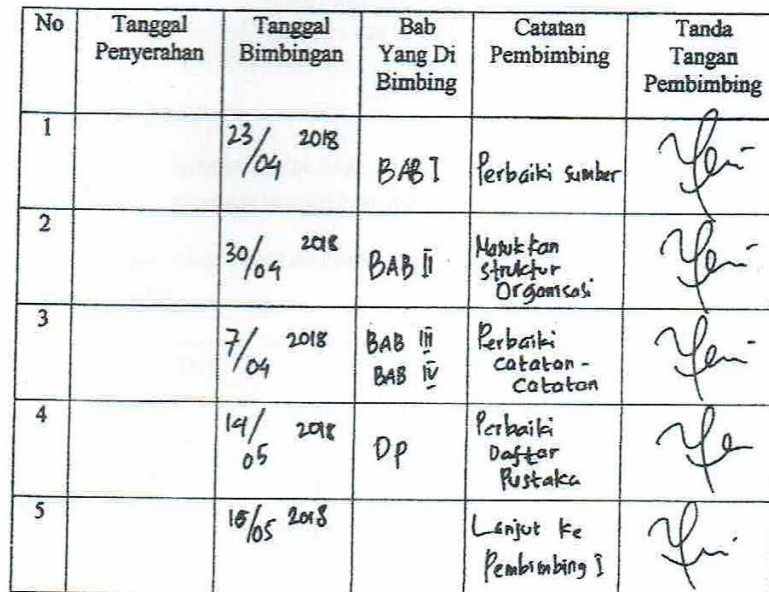 No Tanggal Penyerahan Tanggal Bimbingan Bab Yang Di Bimbing Catatan Pembimbing Tanda Tangan Pembimbing
1 23/04 2018 BAB I Perbaiki sumber
2 30/04 2018 BAB II Masukkan struktur Organisasi
3 7/04 2018 BAB III BAB IV Perbaiki catatan-catatan
4 14/05 2018 DP Perbaiki Daftar Pustaka
5 /05 2018 Lanjut ke Pembimbing I